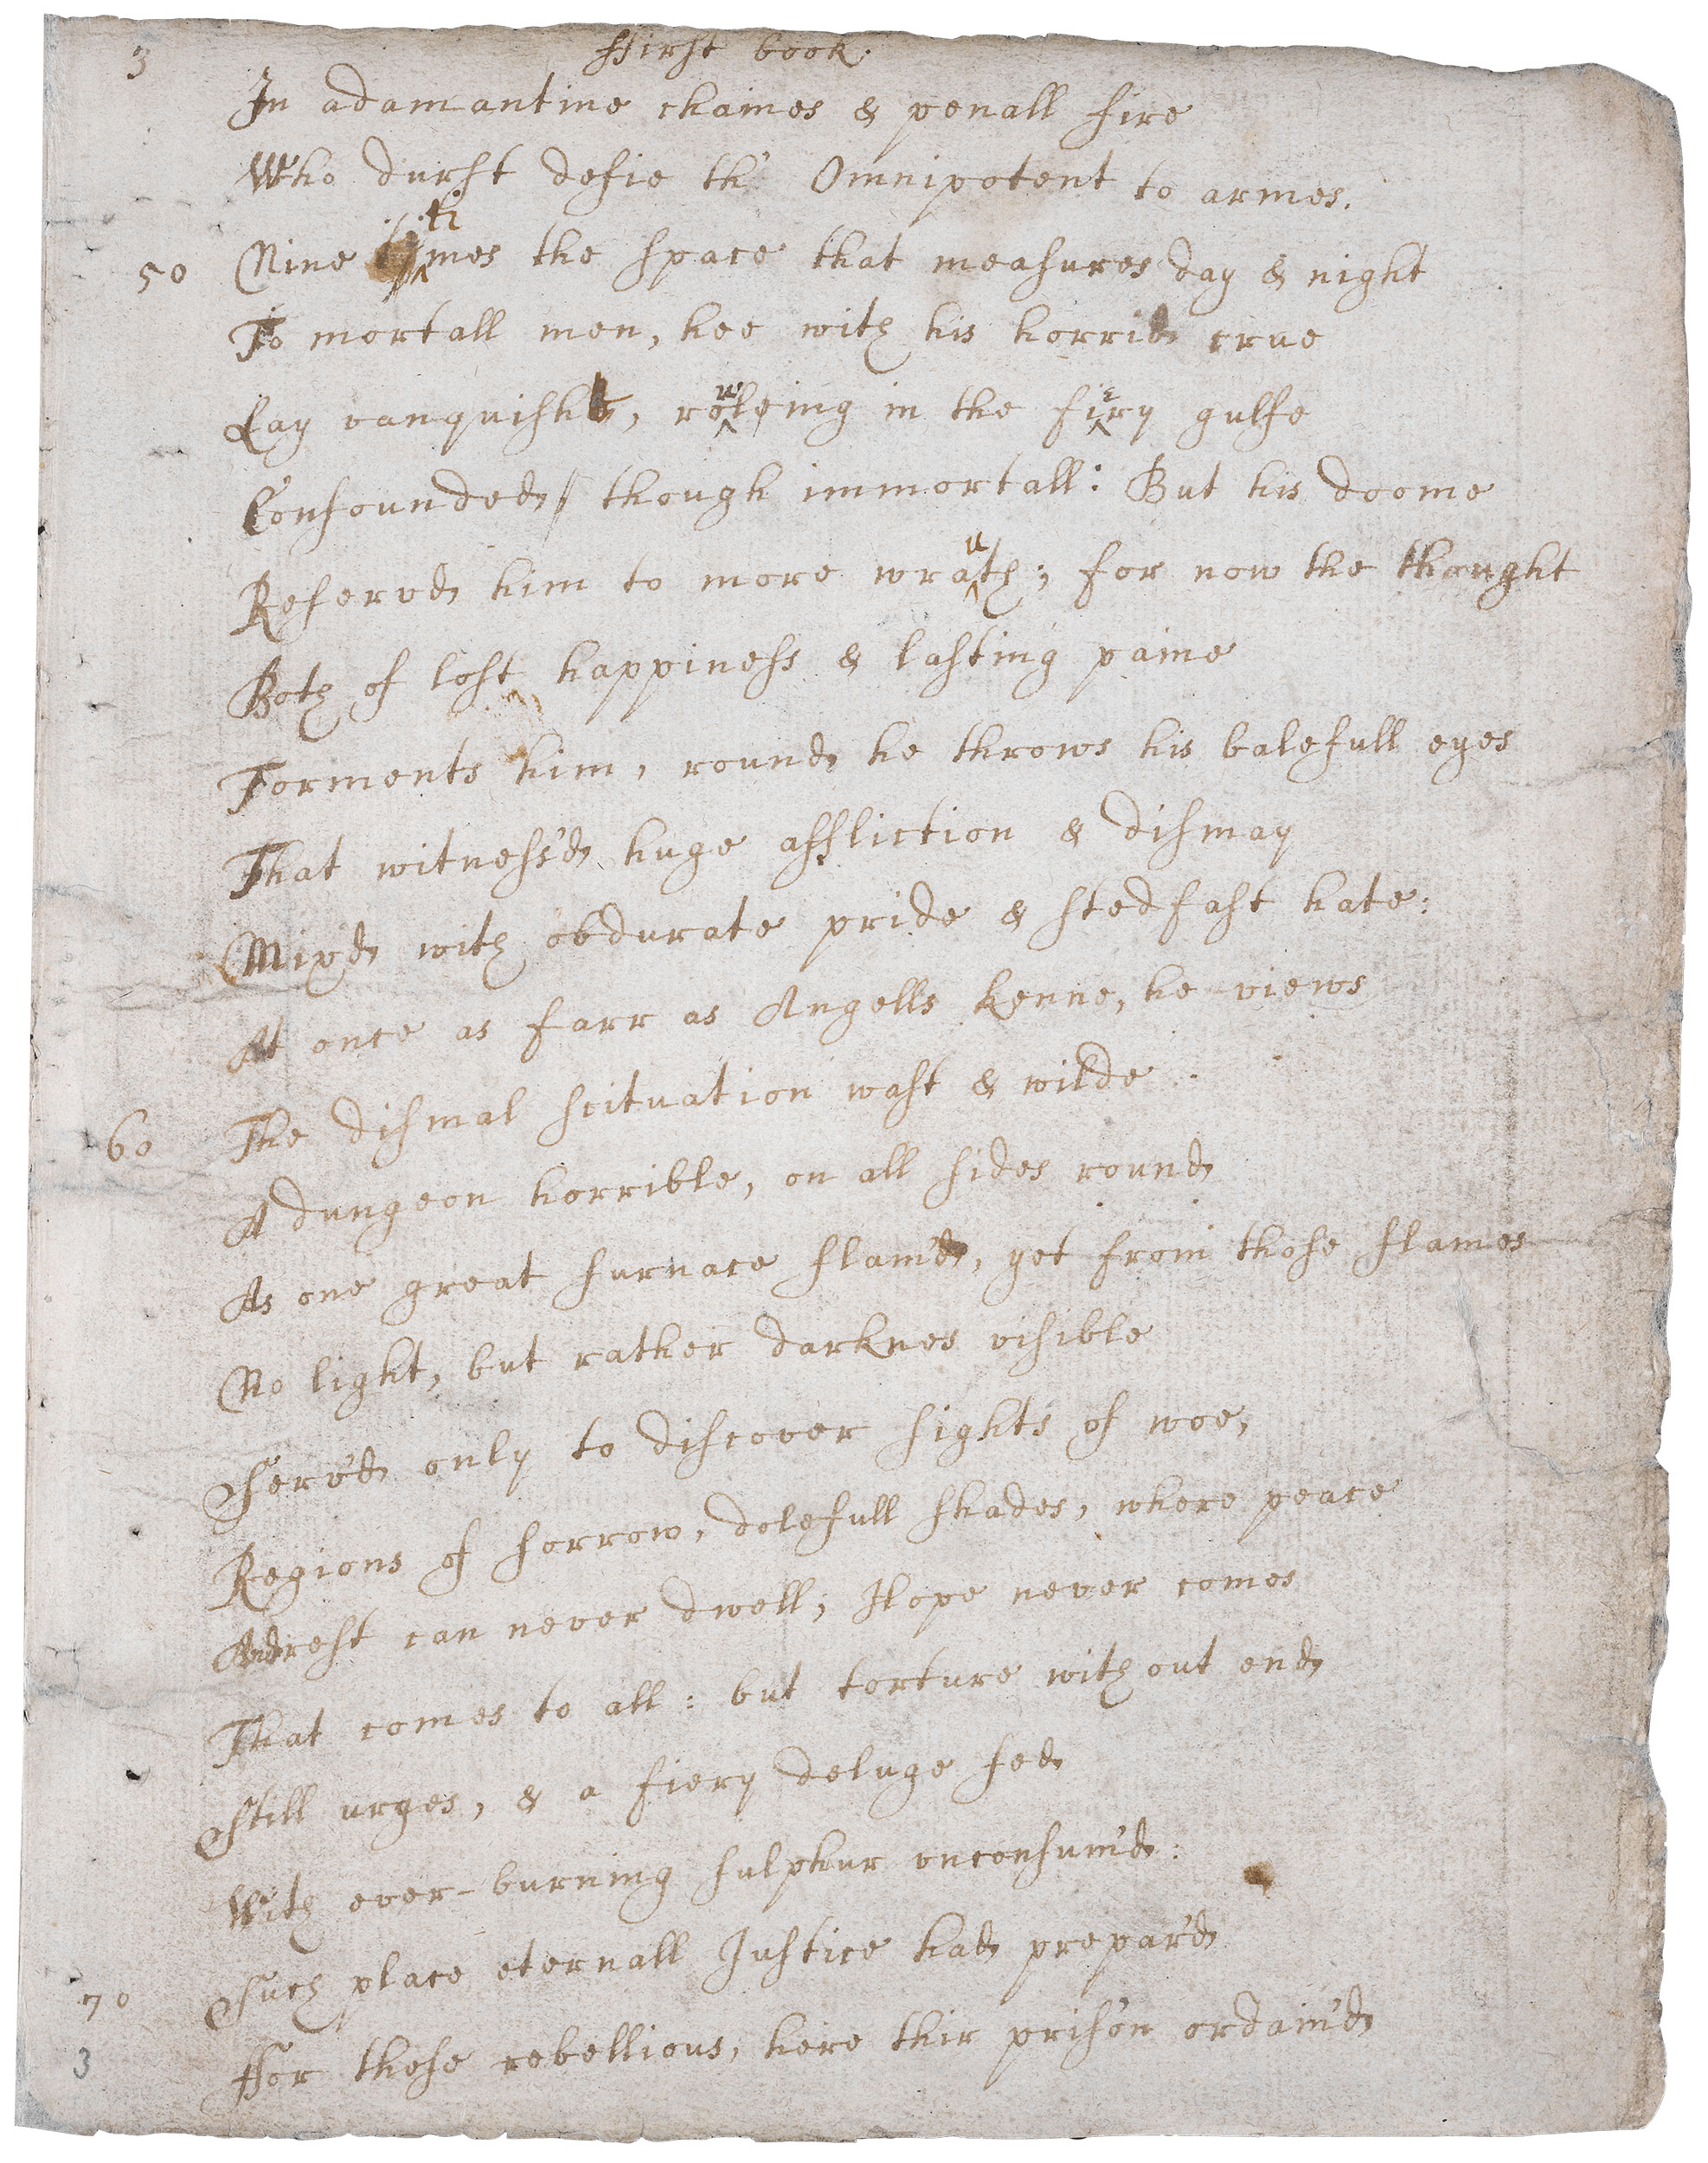 3
ffirst book.
In adamantine chaines & penall fire
Who durst defie th' Omnipotent to armes.
50 Nine times the space that measures day & night
To mortall men, hee with his horrid crue
Lay vanquisht, rowling in the fiery gulfe
Confounded, though immortall: But his doome
Reserv'd him to more wrauth; for now the thought
Both of lost happiness & lasting paine
Torments him, round he throws his balefull eyes
That witness'd huge affliction & dismay
Mixd with obdurate pride & stedfast hate:
At once as farr as Angells kenne, he views
60 The dismal scituation wast & wilde.
A dungeon horrible, on all sides round
As one great furnace flam'd, yet from those flames
No light, but rather darknes visible
Serv'd only to discover sights of woe,
Regions of sorrow, dolefull shades, where peace
And rest can never dwell, Hope never comes
That comes to all: but torture without end
Still urges, & a fiery deluge fed
With ever-burning sulphur unconsum'd:
70 Such place eternall Justice had prepar'd
3 ffor these rebellious, here thir pris'on ordain'd